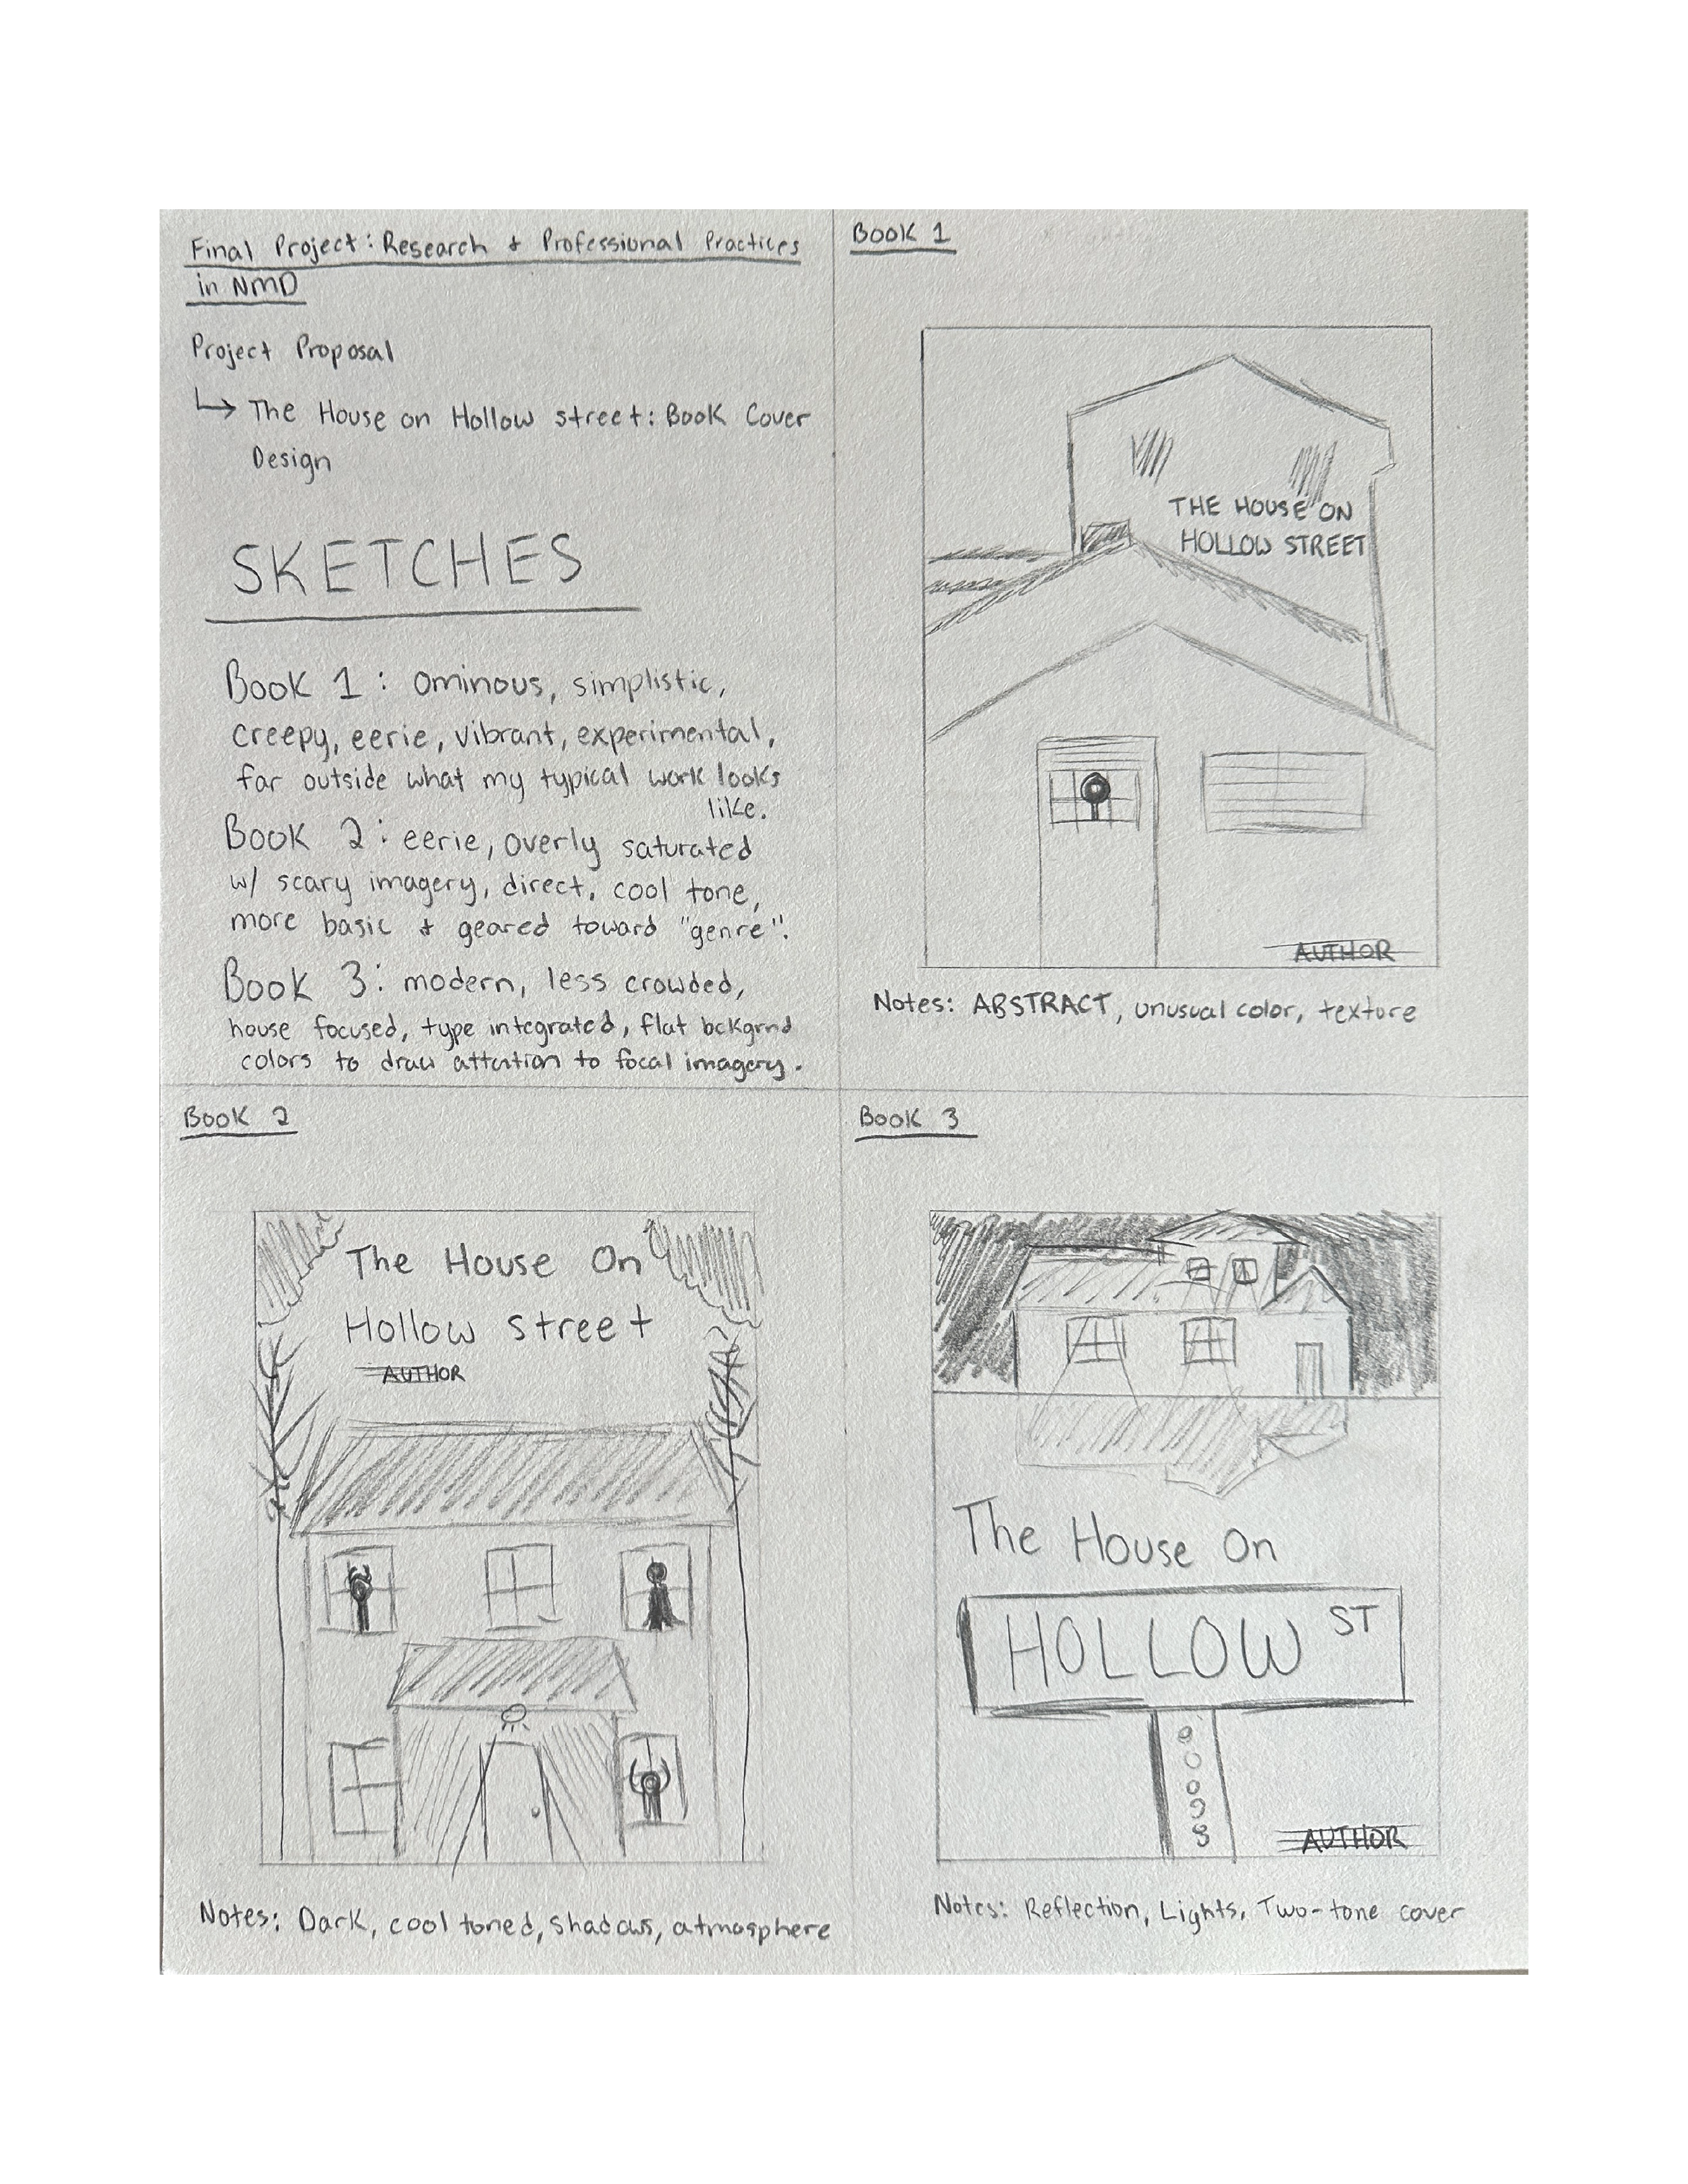 Final Project: Research & Professional Practices
in NMD
Project Proposal
↳ The House on Hollow street: Book Cover
Design
SKETCHES
Book 1: ominous, simplistic,
creepy, eerie, vibrant, experimental,
far outside what my typical work looks
like.
Book 2: eerie, overly saturated
w/ scary imagery, direct, cool tone,
more basic & geared toward "genre".
Book 3: modern, less crowded,
house focused, type integrated, flat bckgrnd
colors to draw attention to focal imagery.
Book 1
THE HOUSE ON
HOLLOW STREET
AUTHOR
Notes: ABSTRACT, unusual color, texture
Book 2
The House On
Hollow street
AUTHOR
Notes: Dark, cool toned, shadows, atmosphere
Book 3
The House On
HOLLOW ST
AUTHOR
Notes: Reflection, Lights, Two-tone cover